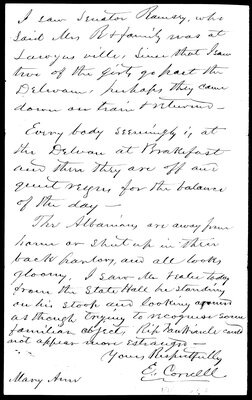 I saw Senator Ramsey, who
said Mrs R & family was at
ville, since that I saw
two of the girls go past the
Delevan, perhaps they came
down on train & returned —
Every body seemingly is at
the Delvan at Brakefast
and then they are off and
quiet reigns for the balance
of the day —
The Albanians are away from
home or shut up in their
back parlors, and all looks
gloomy. I saw Mr today
from the State Hall he standing
on his stoop and looking around
as though trying to recognise some
familiar object, Rip VanWinkle could
not appear more estrange —
Yours Respectfully
E. Cornell
Mary Ann